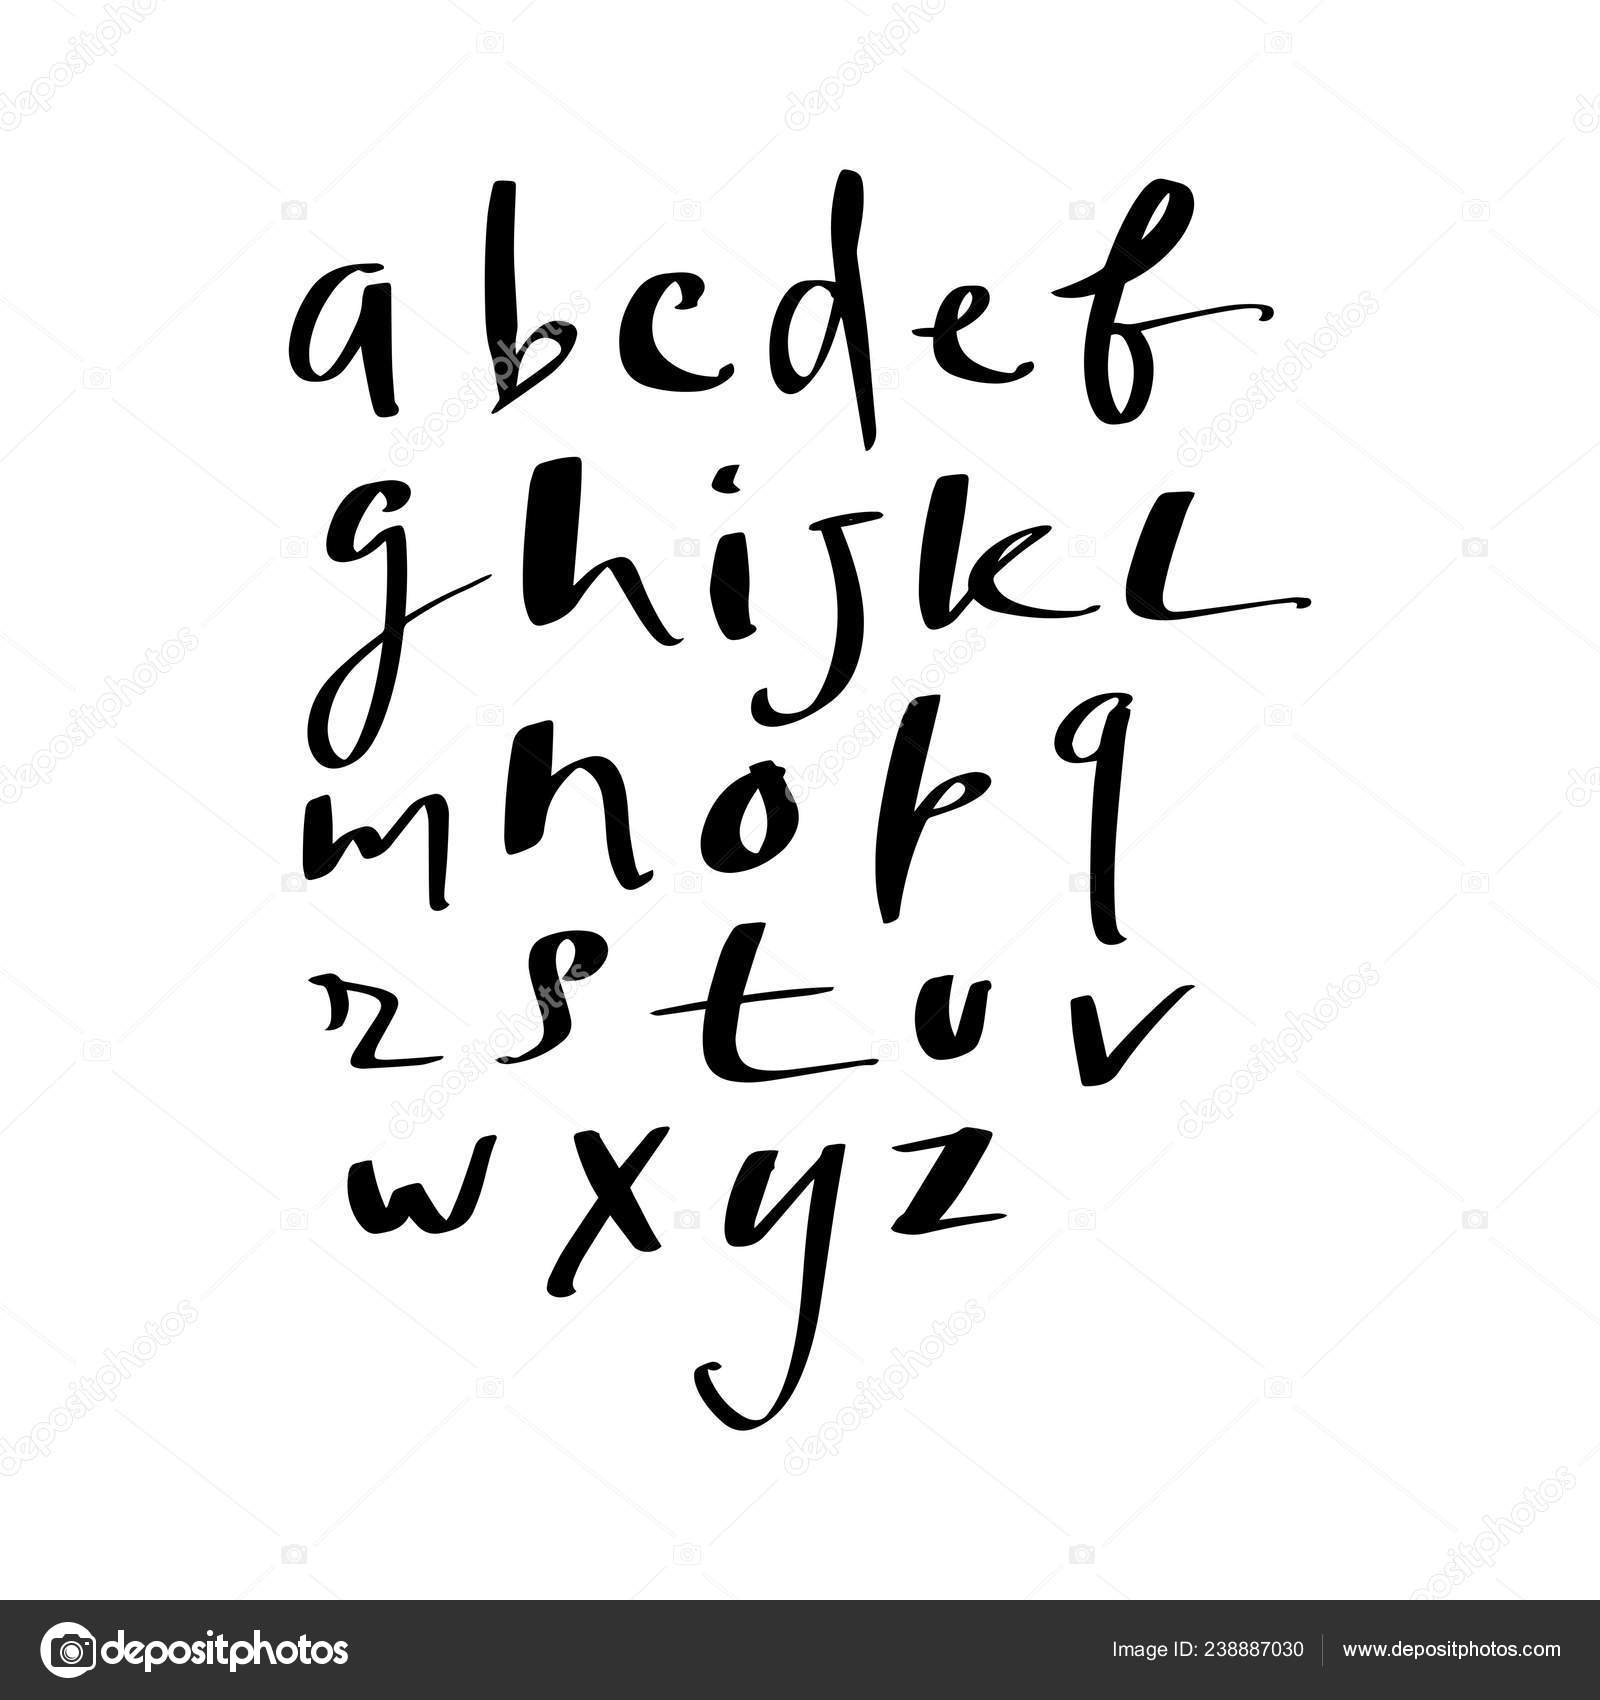 a b c d e f
g h i j k l
m n o p q
r s t u v
w x y z
depositphotos
Image ID: 238887030
www.depositphotos.com